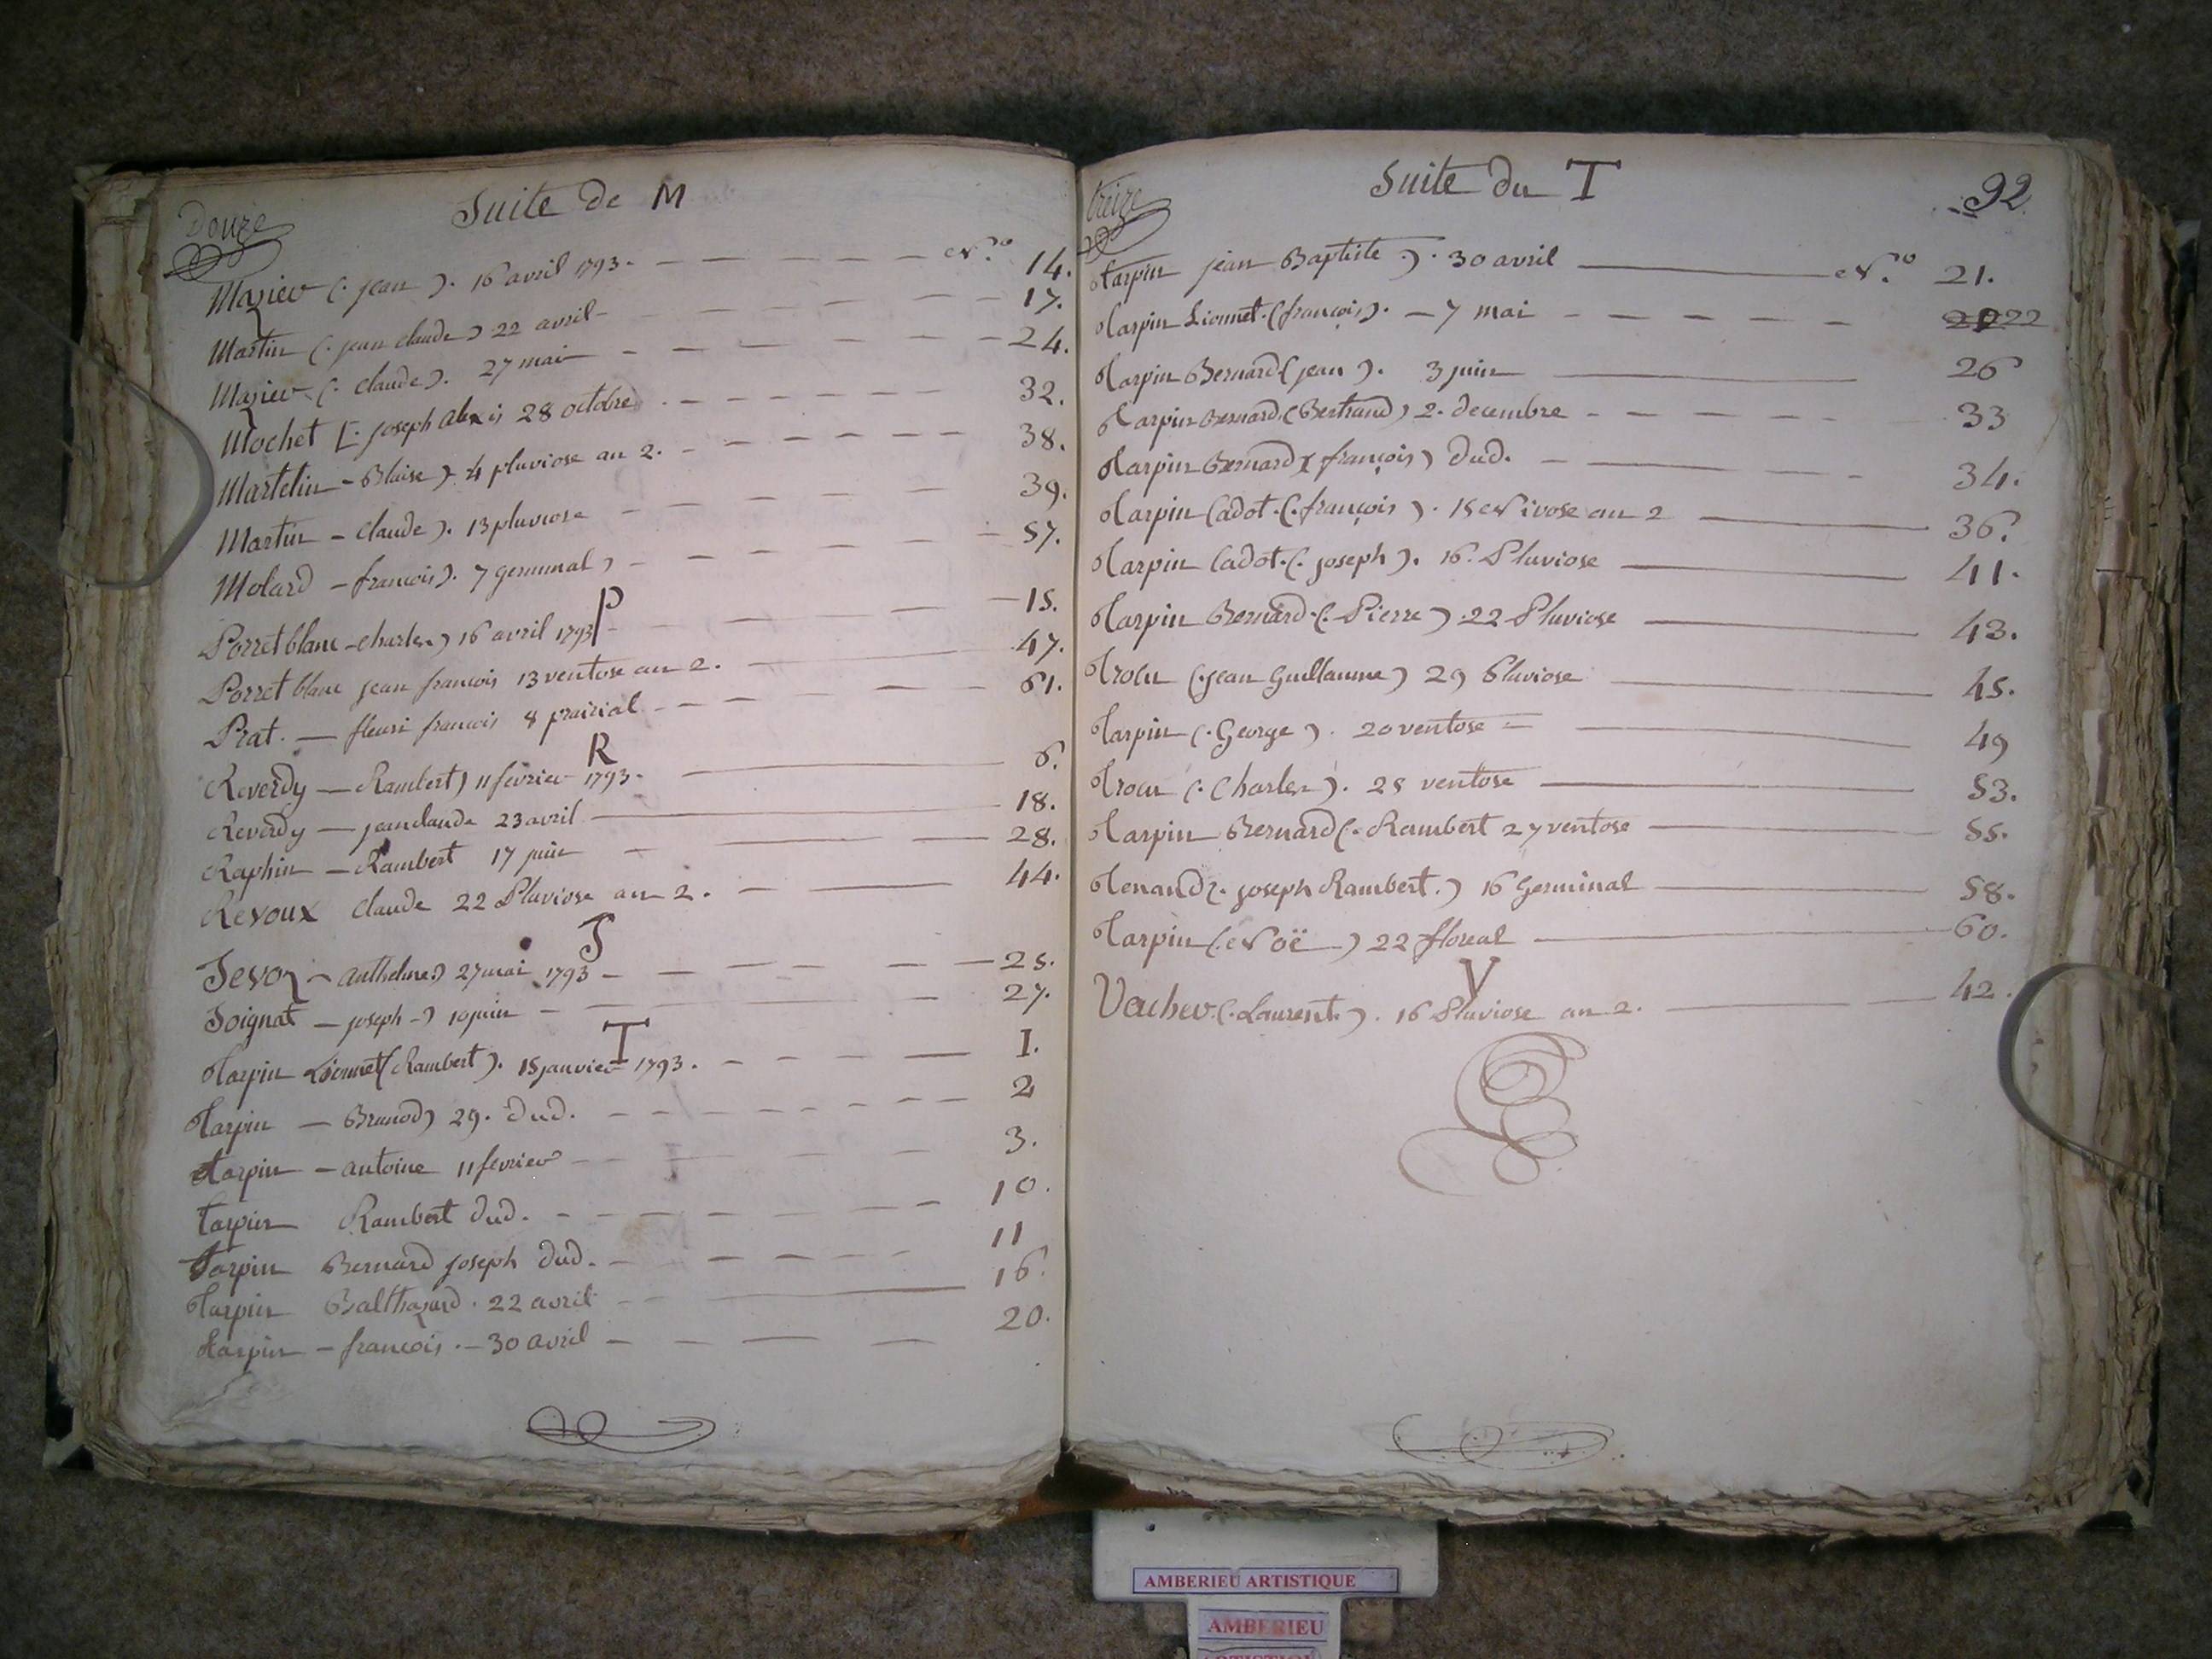 Douze
Suite de M
Mazier (: jean ). 16 avril 1793. N.° 14.
Martin (: jean claude ) 22 avril 17.
Mazier (: claude ). 27 mai 24.
Mochet [: joseph alexis 28 octobre 32.
Martelin - Blaise ) 4 pluviose an 2. 38.
Martin - claude ). 13 pluviose 39.
Molard - francois ). 7 germinal 57.
P
Porret blanc - charles ) 16 avril 1793 15.
Porret blanc jean francois 13 ventose an 2. 47.
Prat. — fleuri francois 8 prairial 61.
R
Reverdy — Rambert ) 11 fevrier 1793. 6.
Reverdy — jean claude 23 avril 18.
Raphin — Rambert 17 juin 28.
Revoux claude 22 Pluviose an 2. 44.
S
Sevoz - anthelme ) 27 mai 1793 25.
Soignat — joseph - ) 10 juin 27.
T
Tarpin Lionnet (Rambert ). 15 janvier 1793. I.
Tarpin — Brunod ) 29. dud. 2
Tarpin — antoine 11 fevrier 3.
Tarpin Rambert dud. 10.
Tarpin Bernard joseph dud. 11
Tarpin Balthazard. 22 avril 16.
Tarpin - francois. — 30 avril 20.
treize
Suite du T
92
Tarpin jean Baptiste ). 30 avril N.° 21.
Tarpin Lionnet (françois ). — 7 mai 22
Tarpin Bernard (jean ). 3 juin 26
Tarpin Bernard (Bertrand ) 2. decembre 33
Tarpin Bernard ( françois ) dud. 34.
Tarpin Cadot (: françois ). 15 Nivose an 2 36.
Tarpin Cadot (: joseph ). 16. Pluviose 41.
Tarpin Bernard (: Pierre ) 22 Pluviose 43.
Trocu (: jean Guillaume ) 29 Pluviose 45.
Tarpin (: George ). 20 ventose 49
Trocu (: Charles ). 25 ventose 53.
Tarpin Bernard (: Rambert 27 ventose 55.
Tenand (: joseph Rambert. ) 16 Germinal 58.
Tarpin (: Noë ) 22 floreal 60.
V
Vacher (: Laurent. ). 16 Pluviose an 2. 42.
AMBERIEU ARTISTIQUE
AMBERIEU
ARTISTIQUE